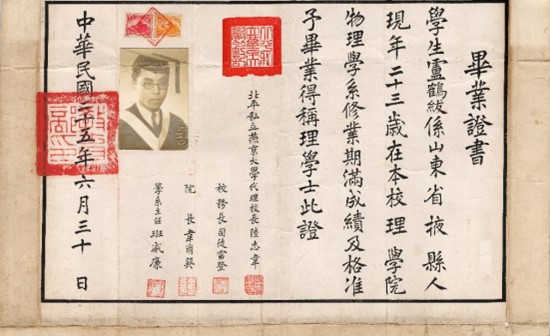 畢業證書
學生盧鶴紱係山東省掖縣人
現年二十三歲在本校理學院
物理學系修業期滿成績及格准
予畢業得稱理學士此證
北平私立燕京大學代理校長陸志韋
校務長司徒雷登
院長韋爾巽
學系主任班威廉
中華民國二十五年六月三十日